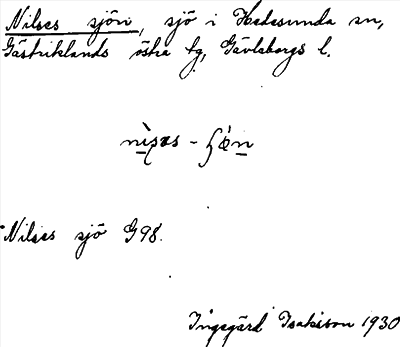 Nilses sjön, sjö i Hedesunda sn,
Gästriklands östra tg, Gävleborgs l.
Nilses sjö G98.
Ingegärd Isakison 1930